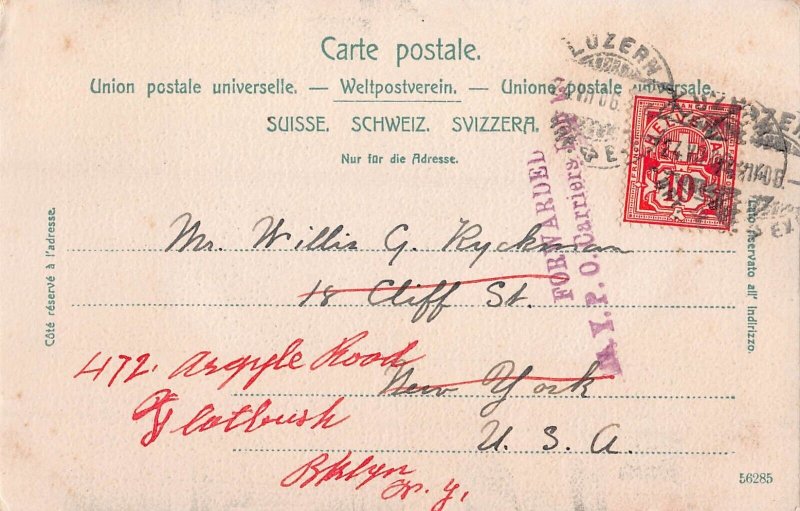 Carte postale.
Union postale universelle. — Weltpostverein. — Unione postale universale.
SUISSE. SCHWEIZ. SVIZZERA.
Nur für die Adresse.
LUZERN
HELVETIA
FRANCO
10
FORWARDED
N.Y.P.O. Carriers
Côté réservé à l'adresse.
Lato riservato all' indirizzo.
Mr. Willis G. Ryckman
18 Cliff St.
New York
U. S. A.
472. Argyle Road
Flatbush
Bklyn
N. Y.
56285